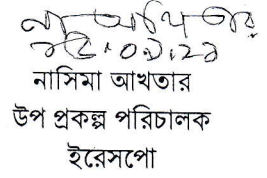 নাসিমা আখতার
উপ প্রকল্প পরিচালক
ইরেসপো